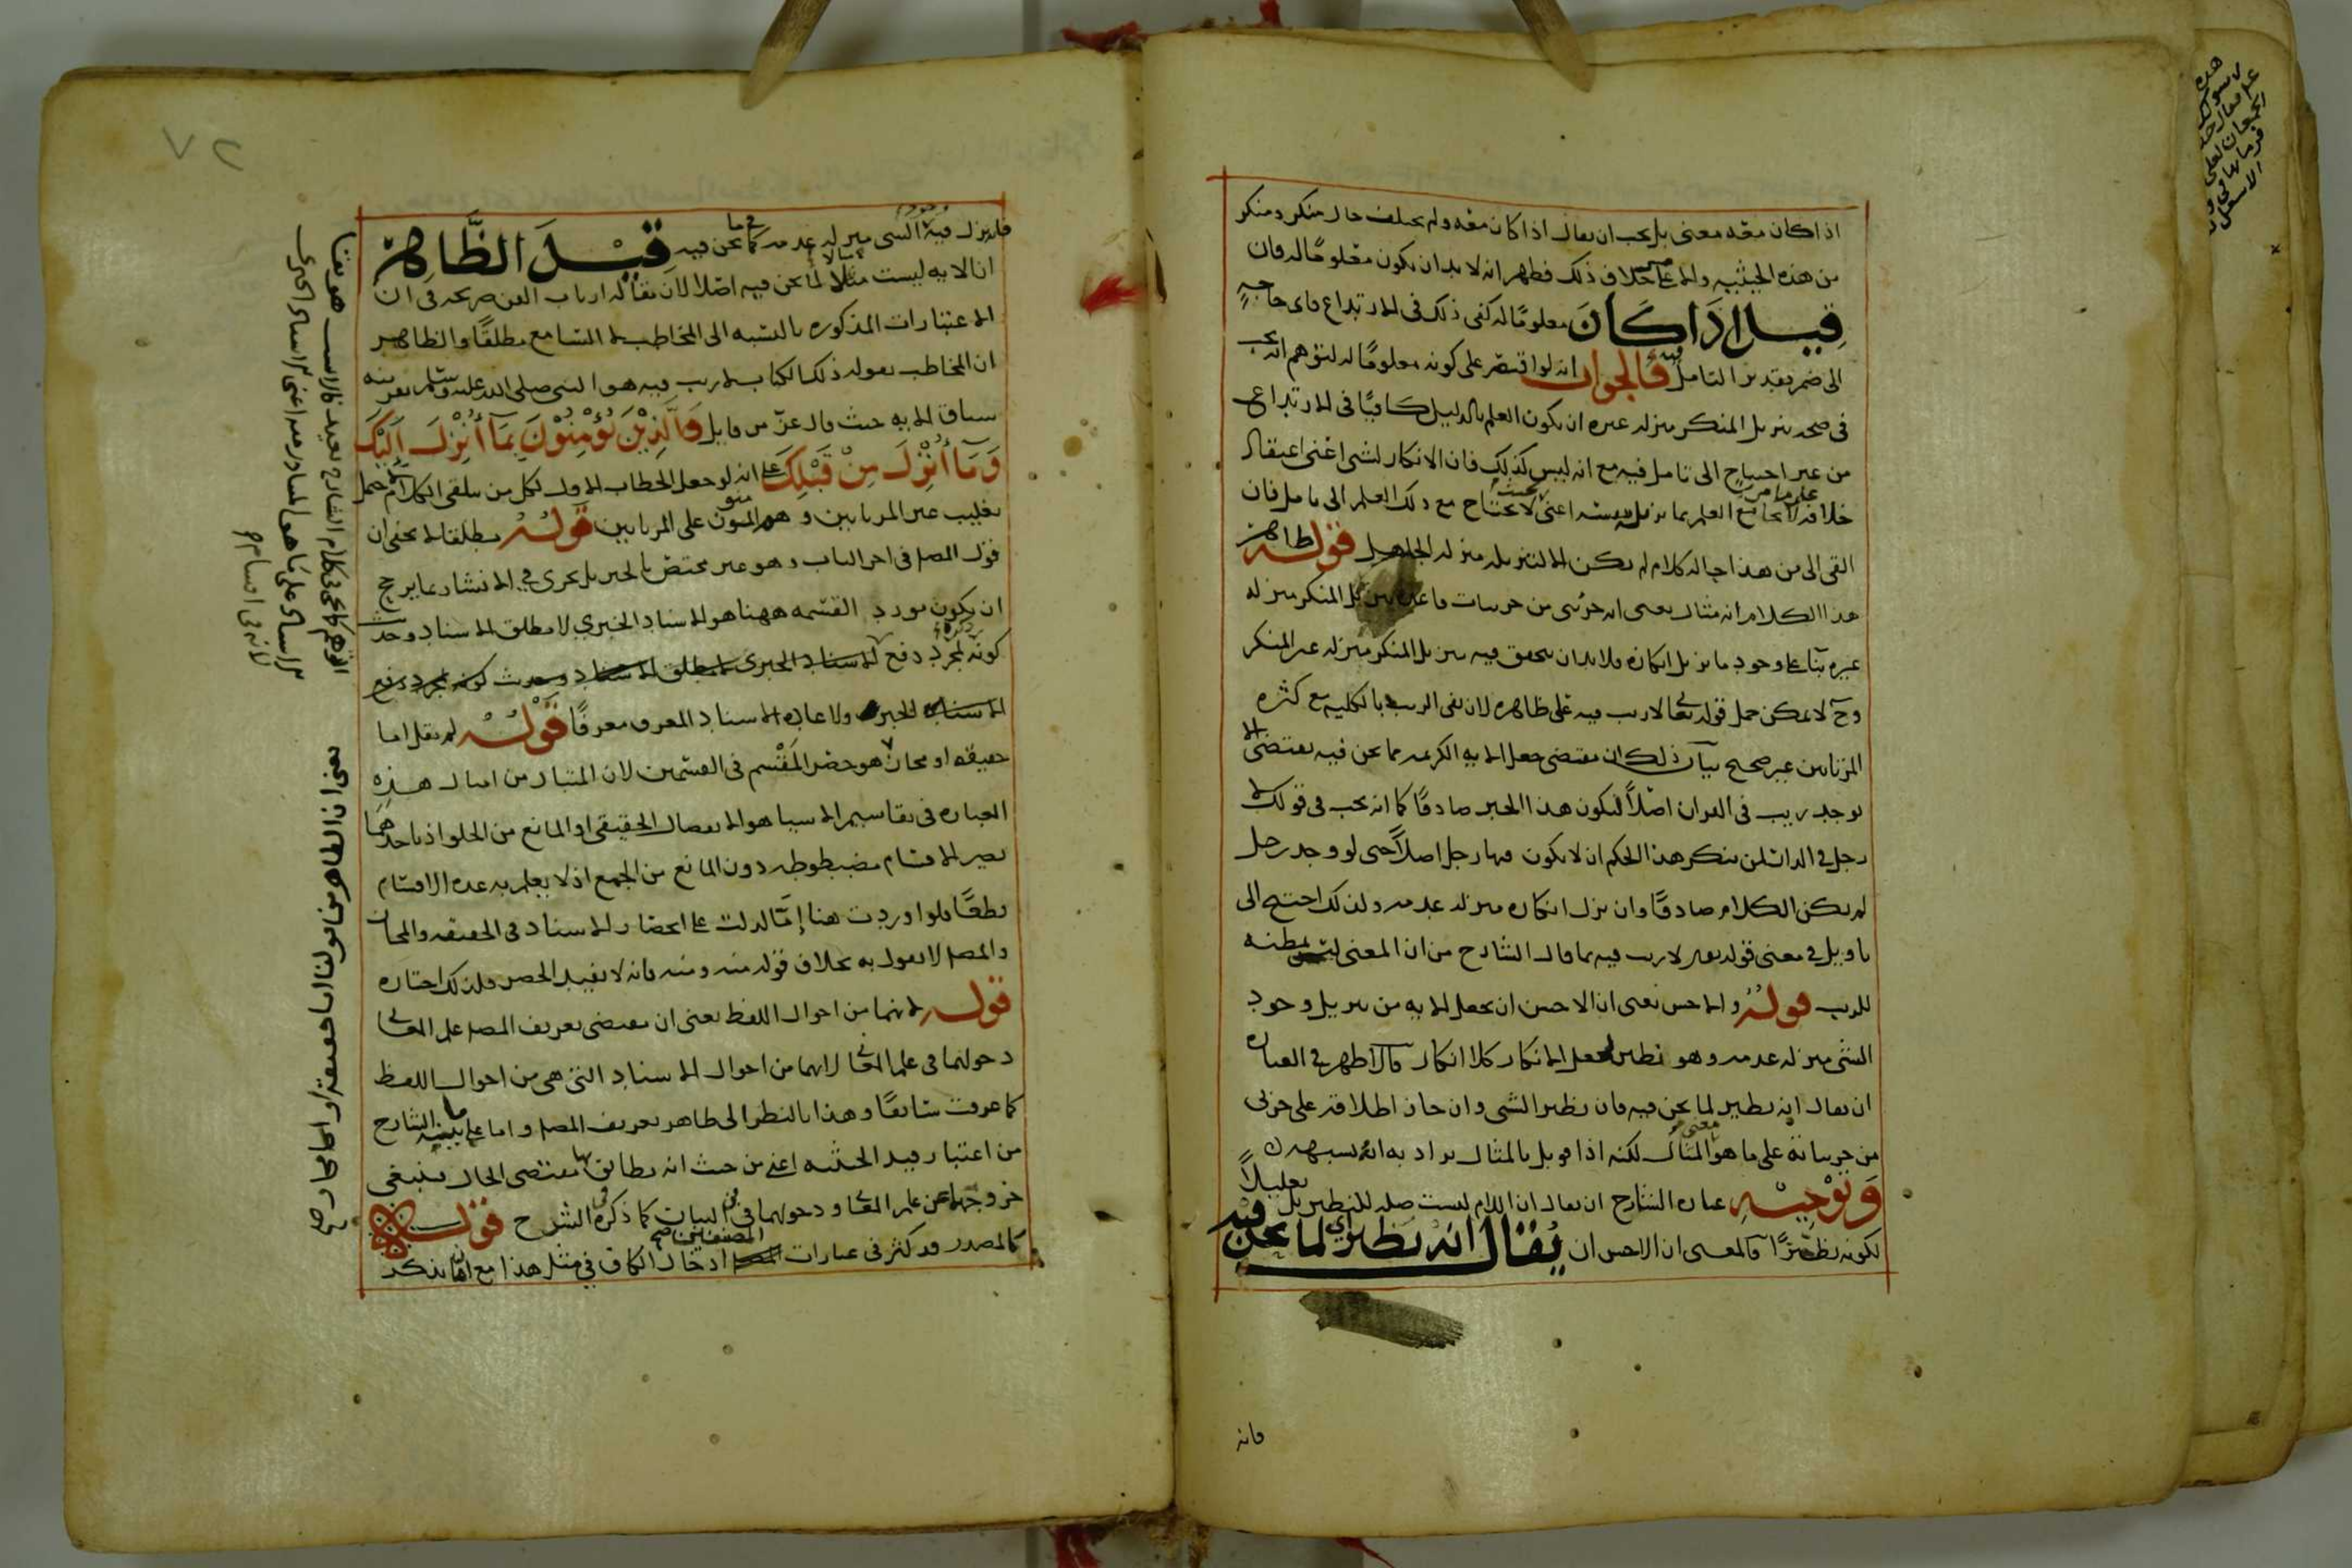 اذا كان معه معنى بل يجب ان يقال اذا كان معه ولم يختلف حال منكر ومنكر
من هذه الحيثية والا على خلاف ذلك فظهر انه لا بد ان يكون معلوما له فان
قيل اذا كان معلوما له كفى ذلك في الارتداع فاى حاجة
الى ضم بقيد من التامل فالجواب انه لو اقتصر على كونه معلوما له لتوهم انه يجب
فى صحة تنزيل المنكر منزلة غيره ان يكون العلم بالدليل كافيا فى الارتداع
من غير احتياج الى تامل فيه مع انه ليس كذلك فان الانكار لشى اعنى اعتقاد
خلافه لا يجامع العلم بما يزيله اعنى لا يحتاج مع ذلك العلم الى تامل فان
القى الى من هذا حاله كلام لم يكن الا لتنزيله منزلة الجاهل قوله ظاهر
هذا الكلام انه مثال يعنى انه جزئى من جزئيات قاعدة تنزيل المنكر منزلة
غيره بنا على وجود ما يزيل انكاره فلا بد ان يتحقق فيه تنزيل المنكر منزلة غير المنكر
وح لا يمكن حمل قوله تعالى لا ريب فيه على ظاهره لان نفى الريب بالكلية مع كثرة
المرتابين غير صحيح بيان ذلك ان مقتضى جعل الاية الكريمة مما نحن فيه يقتضى الا
يوجد ريب فى القران اصلا ليكون هذا الخبر صادقا كما انه يجب فى قولك لا
رجل في الدار لمن ينكر هذا الحكم ان لا يكون فيها رجل اصلا حتى لو وجد رجل
لم يكن الكلام صادقا وان نزل انكاره منزلة عدمه ولذلك احتيج الى
تاويل في معنى قوله تعالى لا ريب فيه بما قال الشارح من ان المعنى ليس بمظنة
للريب قوله والاحسن يعنى ان الاحسن ان يجعل الاية من تنزيل وجود
الشى منزلة عدمه وهو نظير لجعل الانكار كلا انكار فالاظهر في العبارة
ان يقال انه نظير لما نحن فيه فان نظير الشى وان جاز اطلاقه على جزئى
من جزيياته على ما هو معنى المثال لكنه اذا قوبل بالمثال يراد به انه شبيهه
وتوجيه عبارة الشارح ان يقال ان اللام ليست صلة للنظير بل تعليلا
لكونه نظيرا فالمعنى ان الاحسن ان يقال انه نظير اى لما نحن فيه
فانه
٧٢
فان نزل فيه وجود الشى منزلة عدمه كما فيما نحن فيه قيل الظاهر
ان الاية ليست مثالا لما نحن فيه اصلا لان مقالة ارباب الفن صريحة فى ان
الاعتبارات المذكورة بالنسبة الى المخاطب لا السامع مطلقا والظاهر
ان المخاطب بقوله ذلك الكتاب لا ريب فيه هو النبى صلى الله عليه وسلم بقرينة
سياق الاية حيث قال عز من قايل والذين يؤمنون بما أنزل إليك
وما أنزل من قبلك على انه لو جعل الخطاب الاول لكل من يتلقى الكلام حمل
تغليب غير المرتابين وهم المؤمنون على المرتابين قوله مطلقا لا يخفى ان
قول المصر فى اخر الباب وهو غير مختص بالخبر بل يجرى في الانشاء مما يرجح
ان يكون مورد القسمة ههنا هو الاسناد الخبري لا مطلق الاسناد وحديث
كونه لمجرد دفع
ولا عادة الاسناد المعرف معرفا قوله لم يقل اما
حقيقة او مجاز هو حصر المقسم فى القسمين لان المتبادر من امثال هذه
العبارة فى تقاسيم الاشيا هو الانفصال الحقيقى او المانع من الخلو اذ باحدهما
يصير الاقسام مضبوطة دون المانع من الجمع اذ لا يعلم به عدة الاقسام
قطعا فلو اوردت هنا إما لدلت على انحصار الاسناد فى الحقيقة والمجاز
والمصر لا يقول به بخلاف قوله منه ومنه فانه لا يفيد الحصر فلذلك اختاره
قوله لانهما من احوال اللفظ يعنى ان مقتضى تعريف المصر علم المعانى
دخولهما فى علم المعانى لانهما من احوال الاسناد التى هى من احوال اللفظ
كما عرفت سابقا وهذا بالنظر الى ظاهر تعريف المصر واما على ما بينه الشارح
من اعتبار قيد الحيثية اعنى من حيث انه يطابق بها مقتضى الحال فينبغى
خروجهما عن علم المعانى ودخولهما فى فن البيان كما ذكره فى الشرح قوله
كالمصدر قد كثر فى عبارات المصنفين ادخال الكاف في مثل هذا مع انه لم يذكر
يعنى ان الظاهر من قولنا اما حقيقة او اما مجاز